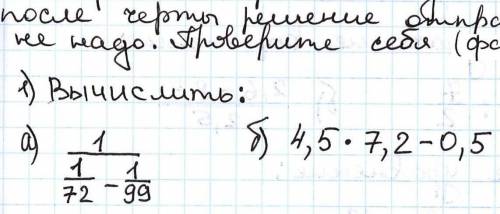 после черты решение отпра
не надо. Проверите себя (фо
1) Вычислить:
а) 1/(1/72 - 1/99) б) 4,5 · 7,2 - 0,5